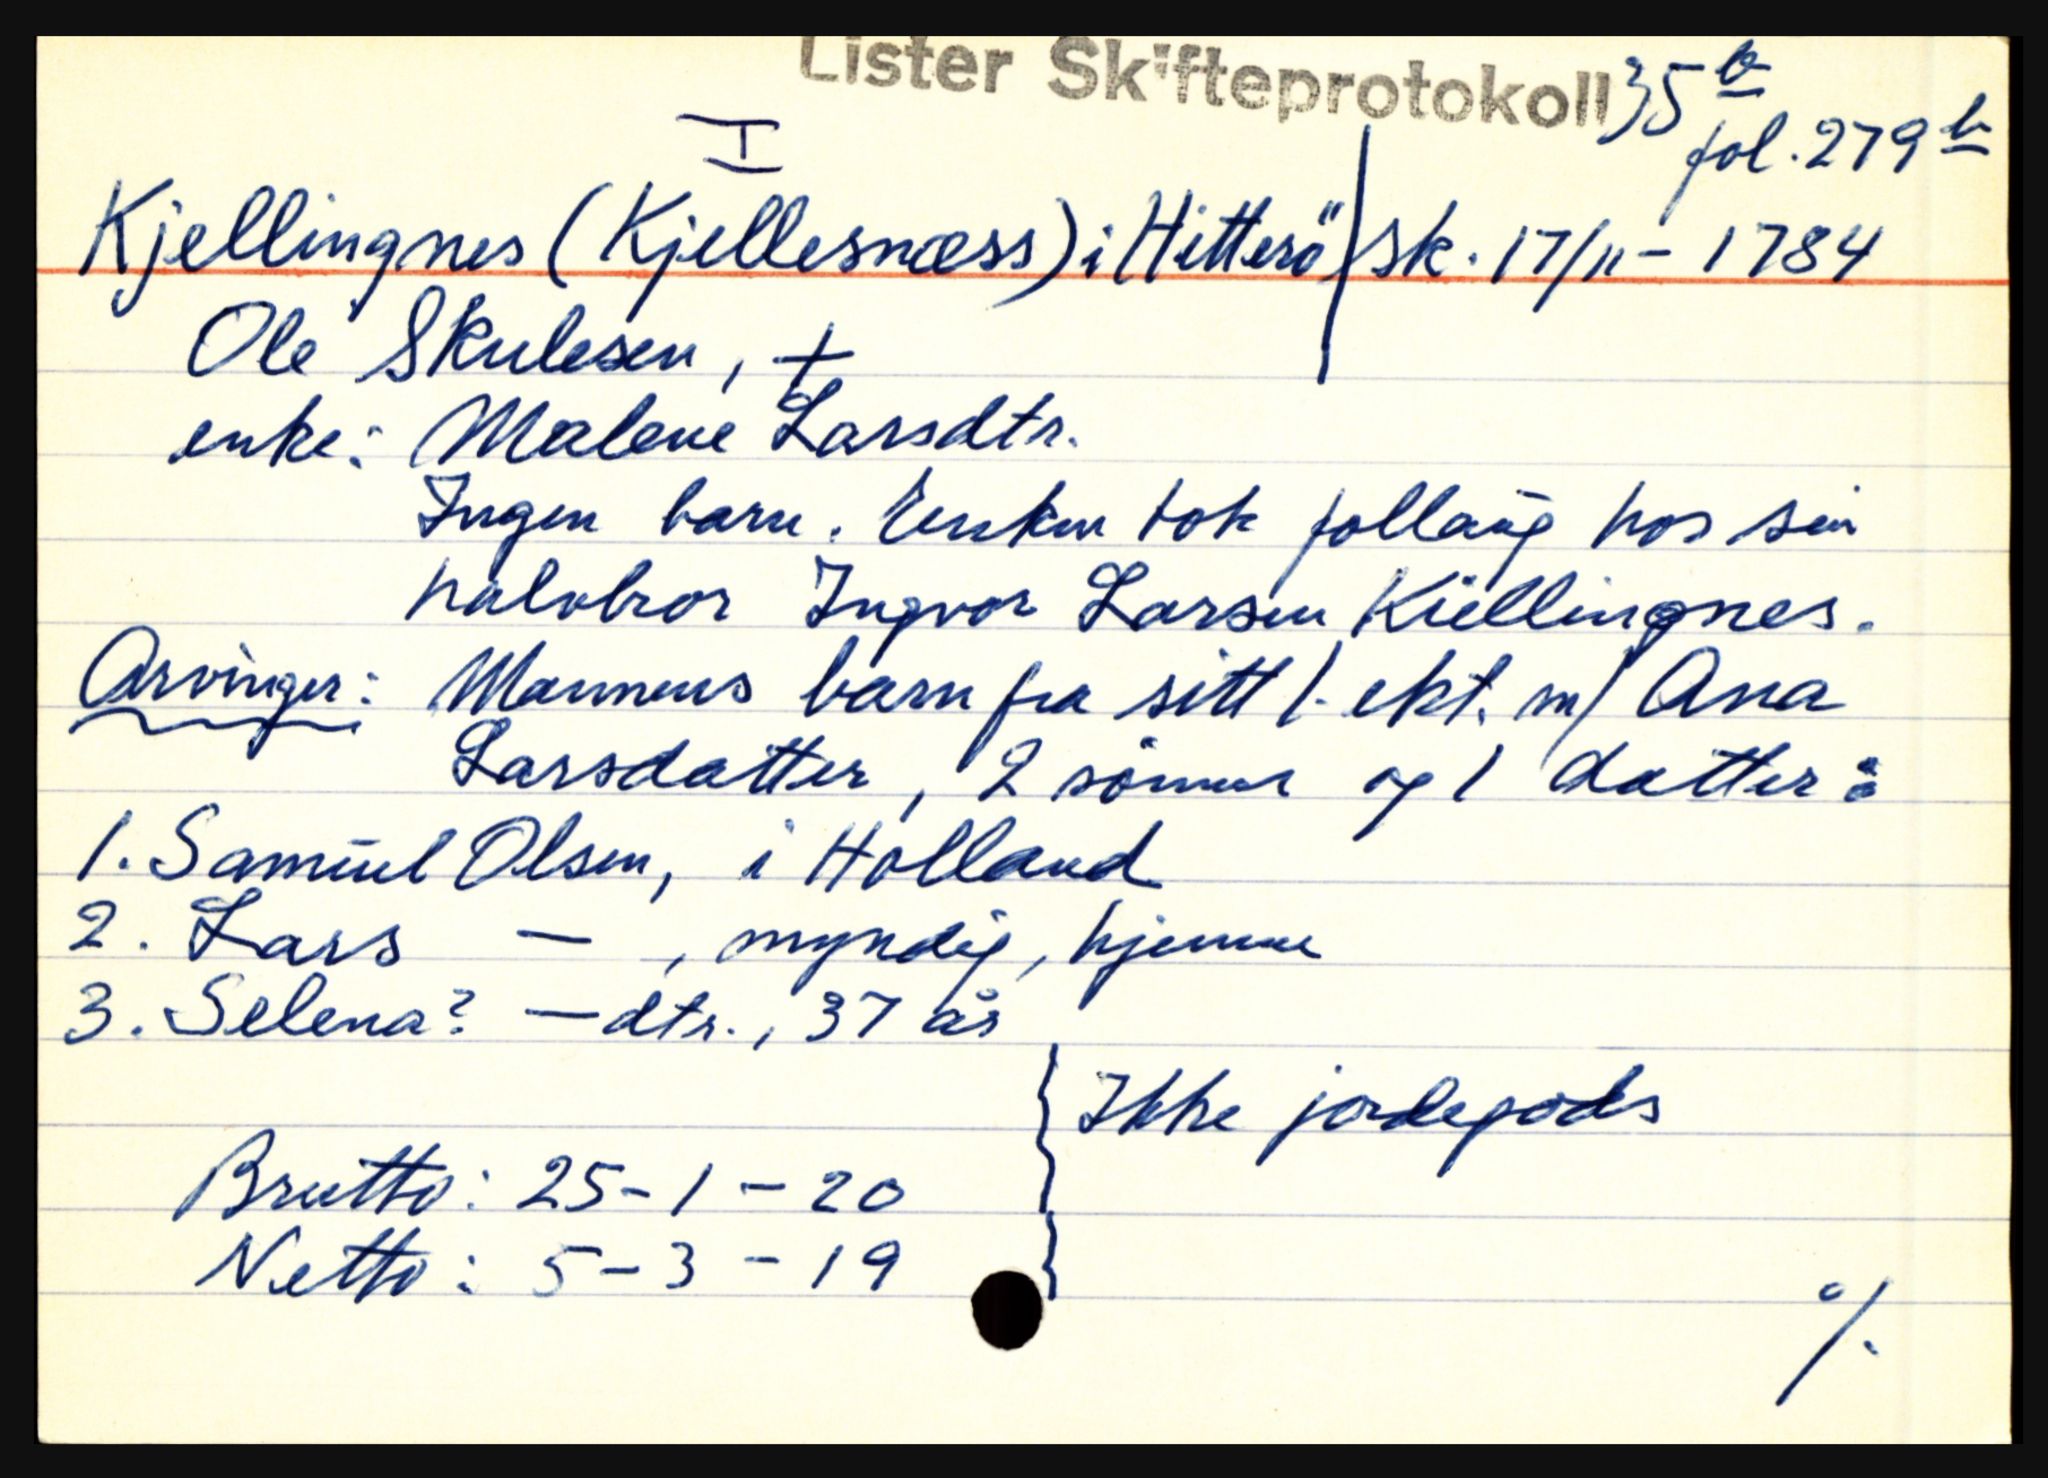 Lister Skifteprotokoll 35 b
fol. 279 b
I
Kjellingnes (Kjellesnæss) i Hitterö sk. 17/11 - 1784
Ole Skulesen, +
enke: Malene Larsdtr.
Ingen barn. Enken tok follaug hos sin
halvbror Ingvor Larsen Kiellingnes.
Arvinger: Mannens barn fra sitt 1. ekt. m/ Ana
Larsdatter, 2 sönner og 1 datter:
1. Samuel Olsen, i Holland
2. Lars — , myndig, hjemme
3. Selena? — dtr., 37 år
Ikke jordegods
Brutto: 25 - 1 - 20
Netto: 5 - 3 - 19
%.